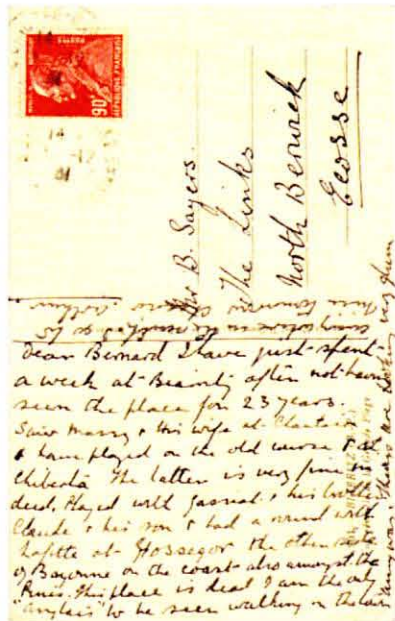 90c
14
-12
31
Mr B. Sayers.
The Links
North Berwick
Ecosse
Dear Bernard I have just spent
a week at Biarritz after not having
seen the place for 23 years.
Saw Massy & his wife at Chantaco
& have played on the old course & at
Chiberta The latter is very fine in
deed. Played with Gassiat & his brother
Claude & his son & had a round with
Lafitte at Hossegor the other side
of Bayonne on the coast also amongst the
Pines. This place is dead I am the only
"Anglais" to be seen walking on the
are looking very glum